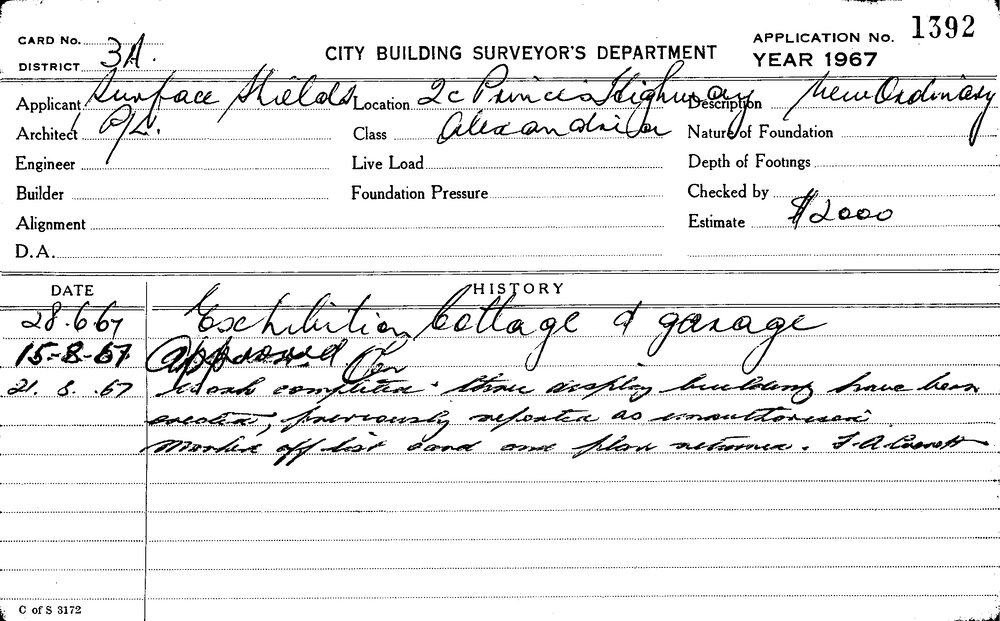 CARD No.
1392
APPLICATION No.
DISTRICT 3A.
CITY BUILDING SURVEYOR'S DEPARTMENT
YEAR 1967
Applicant Surface Shields Location 2c Princes Highway Description New Ordinary
Architect P/L. Class Alexandria Nature of Foundation
Engineer Live Load Depth of Footings
Builder Foundation Pressure Checked by
Alignment Estimate $2000
D.A.
DATE HISTORY
28.6.67 Exhibition Cottage & garage
15-8-67 Approved
21.8.67 Work completed. These display buildings have been
erected, previously reported as unauthorised.
Marked off list card and plan returned.
C of S 3172